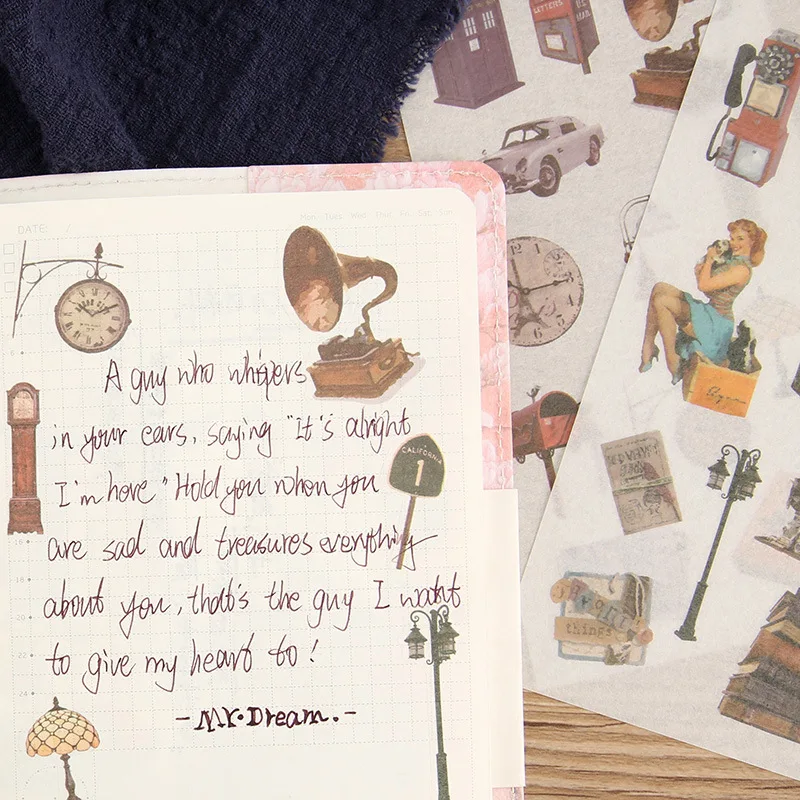 DATE: /
Mon Tues Wed Thur Fri Sat Sun
A guy who whispers
in your ears, saying "It's alright
I'm here" Hold you when you
are sad and treasures everything
about you, that's the guy I want
to give my heart to!
-Mr.Dream.-
CALIFORNIA
1
LETTERS
MAIL
things
16
18
20
22
24